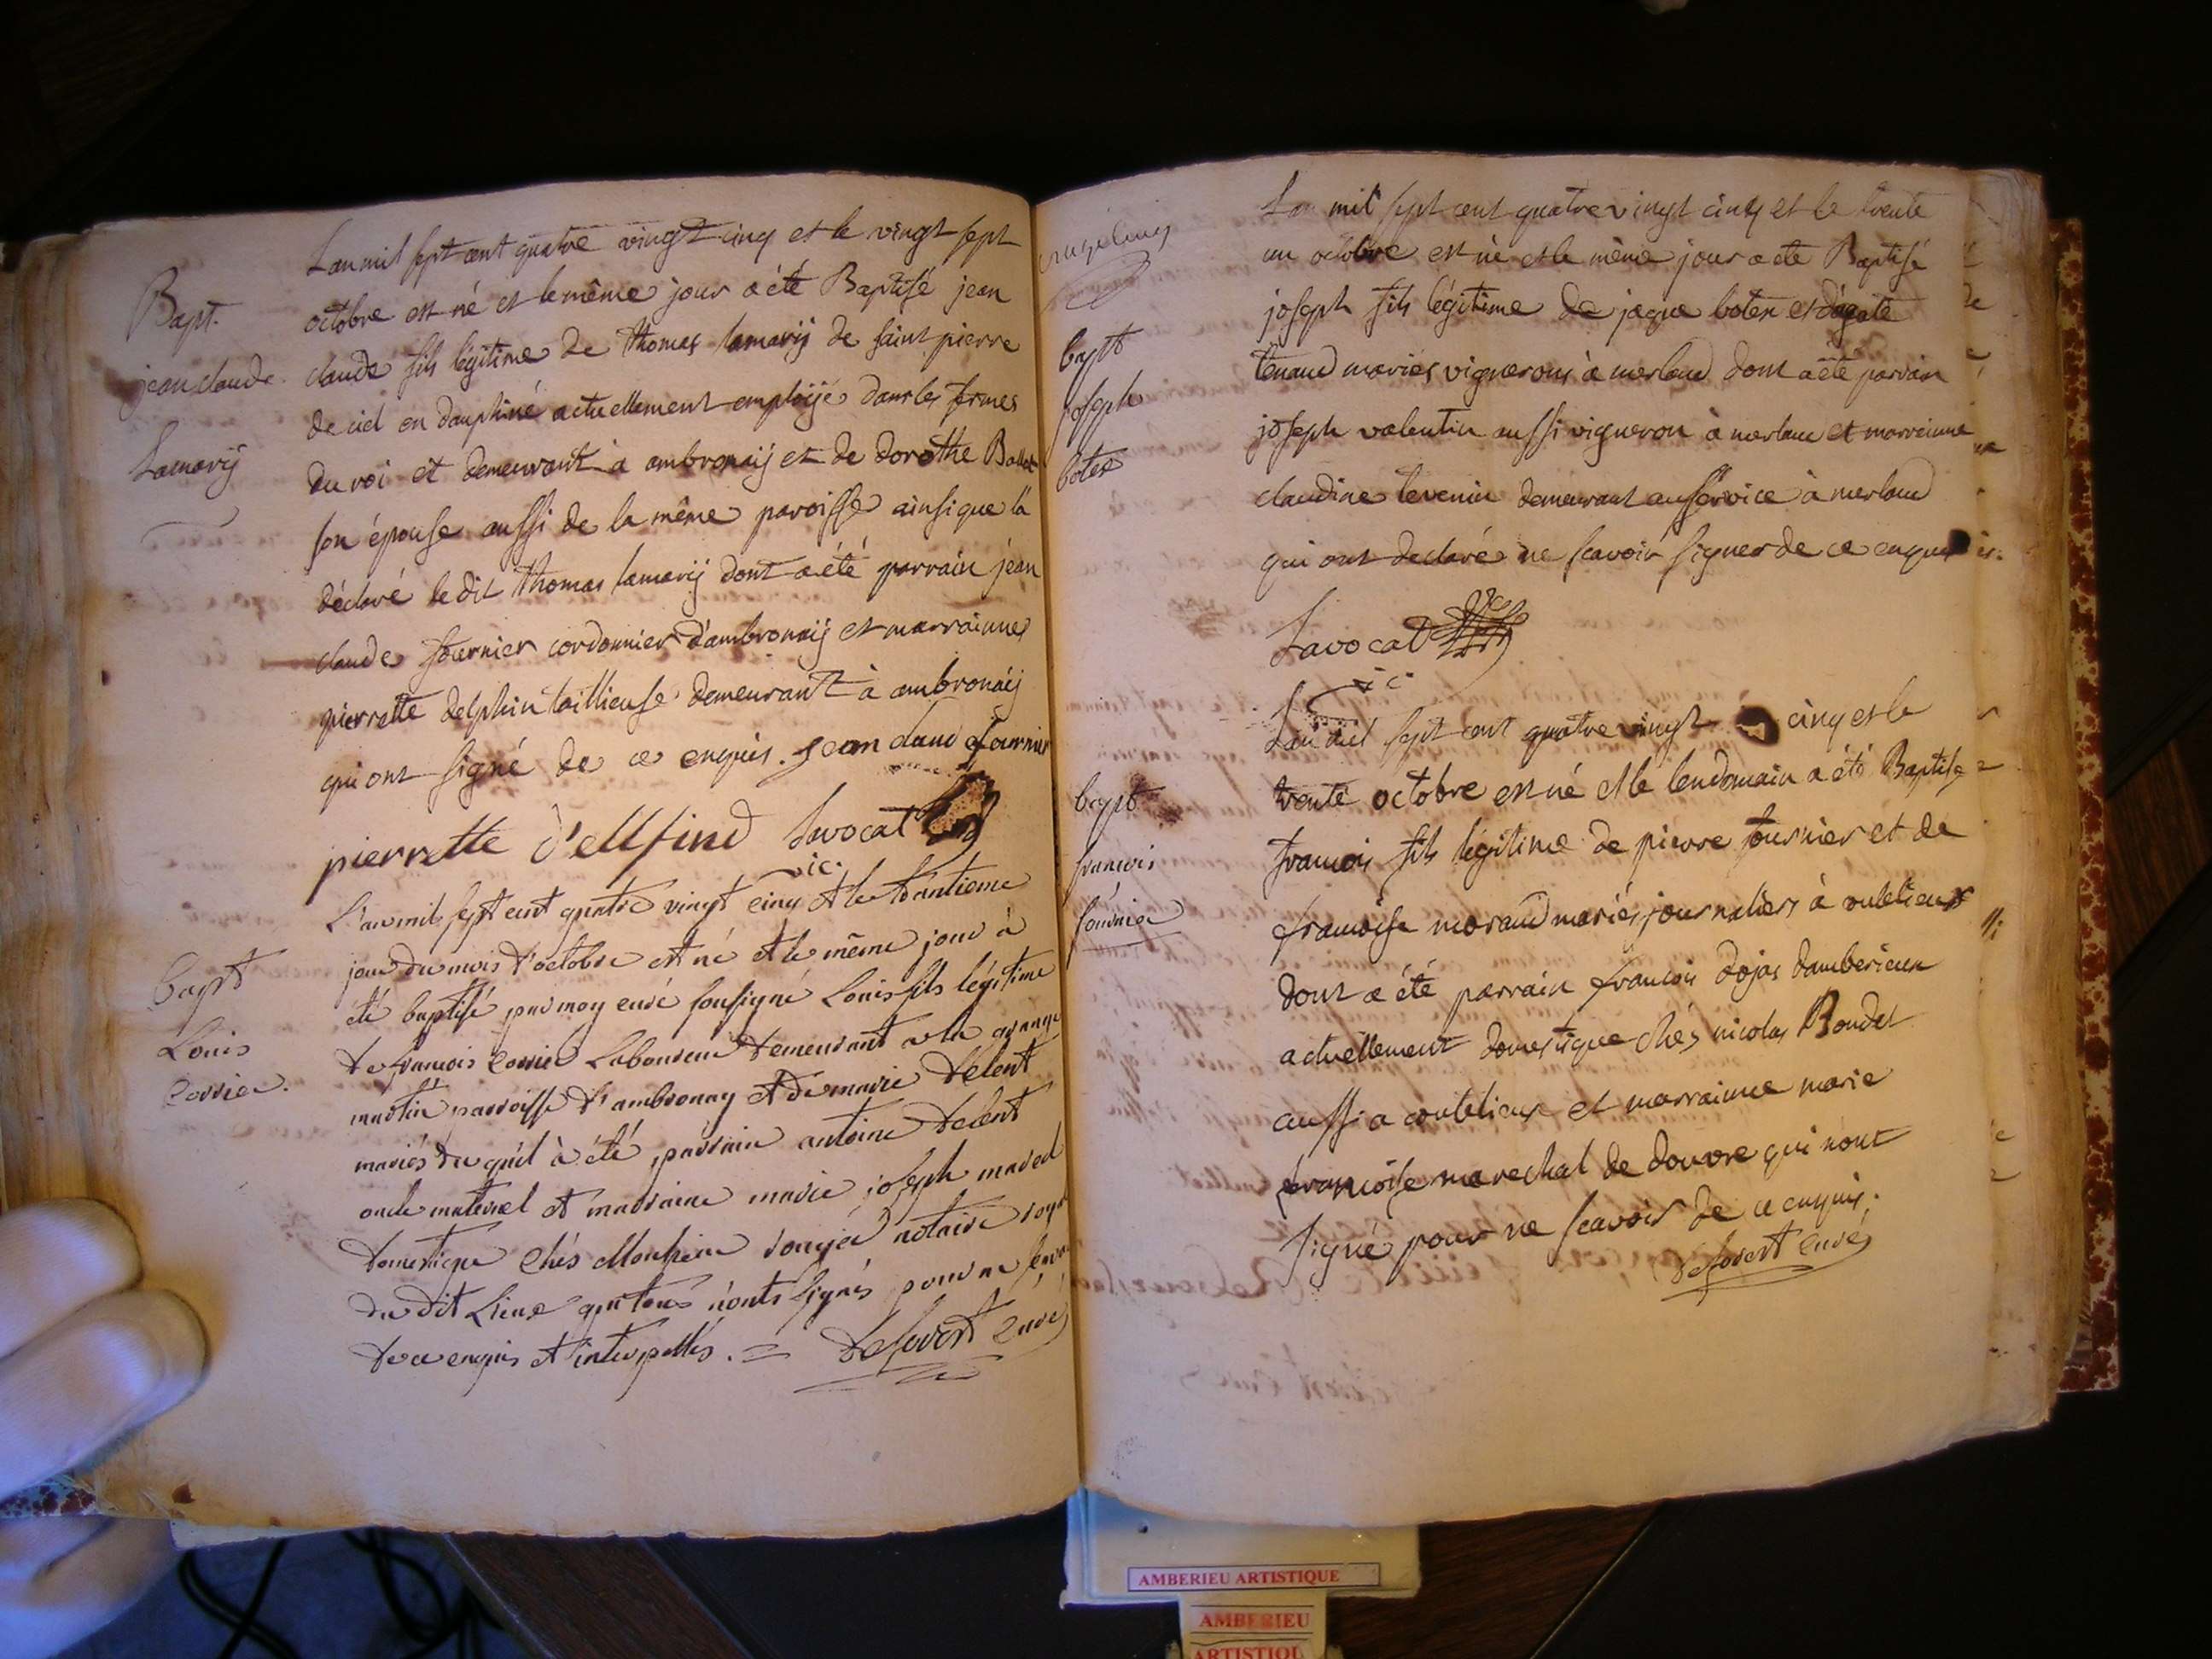 Bapt.
jean claude
Lamarij
L'an mil sept cent quatre vingt cinq et le vingt sept
octobre est né et le même jour a été Baptisé jean
claude fils légitime de thomas lamarij de saint pierre
de ciel en dauphiné actuellement emploijé dans les fermes
du roi et demeurant à ambronaij et de dorothe
son épouse aussi de la même paroisse ainsi que la
déclaré le dit thomas lamarij dont a été parrain jean
claude fournier cordonnier d'ambronaij et marrainne
pierrette delphin taillieuse demeurant à ambronaij
qui ont signé de ce enquis. jean claud fournier
pierrette d'ellfind Lavocat
vic.
bapt
Louis
Carrier.
L'an mil sept cent quatre vingt cinq et le trantieme
jour du mois d'octobre est né et le même jour à
été baptisé par moy curé soussigné Louis fils légitime
de francois Carrier Laboureur demeurant a la grange
martin parroisse d'ambronay et de marie Delent
mariés du quel à été parrain antoine delent
oncle maternel et marraine marie joseph
domestique chés Monsieur notaire royal
du dit Lieux qui tous n'onts signés pour ne
de ce enquis et interpellés. = curé
bapt
joseph
boter
L'an mil sept cent quatre vingt cinq et le trente
un octobre est né et le même jour a ete Baptisé
joseph fils légitime de jaque boter et d'agate
tenand mariés vignerons à merland dont a été parrain
joseph valentin aussi vigneron à merland et marrainne
claudine tevenin demeurant au service à merland
qui ont declaré ne scavoir signer de ce enquis
Lavocat
vic
bapt
francois
fournier
L'an mil sept cent quatre vingt cinq et le
trente octobre est né et le lendemain a été Baptisé
francois fils légitime de pierre fournier et de
francoise morand mariés journaliers à coutelieux
dont a été parrain francois dojas d'amberieux
actuellement domestique chés nicolas Bondet
aussi a coutelieux et marrainne marie
francoise marechal de douvre qui n'ont
signé pour ne scavoir de ce enquis.
curé
AMBERIEU ARTISTIQUE
AMBERIEU
ARTISTIQU